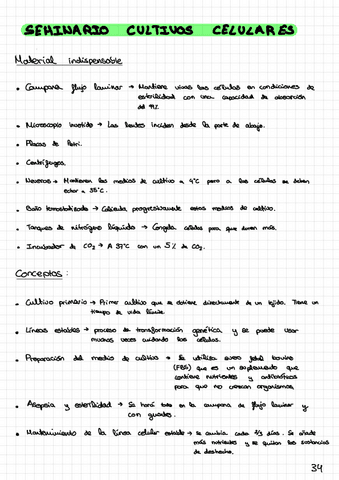 SEMINARIO CULTIVOS CELULARES
Material indispensable
• Campana flujo laminar → Mantiene vivas las células en condiciones de
esterilidad con una capacidad de absorción
del 99%.
• Microscopio invertido → Las lentes inciden desde la parte de abajo.
• Placas de Petri.
• Centrífugas.
• Neveras → Mantienen los medios de cultivo a 4°C pero a las células se deben
echar a 35°C.
• Baño termostatizado → Calienta progresivamente estos medios de cultivo.
• Tanques de nitrógeno líquido → Congela células para que duren más.
• Incubador de CO₂ → A 37°C con un 5% de CO₂.
Conceptos:
• Cultivo primario → Primer cultivo que se obtiene directamente de un tejido. Tiene un
tiempo de vida límite.
• Líneas estables → proceso de transformación genética, y se puede usar
muchas veces cuidando las células.
• Preparación del medio de cultivo → Se utiliza suero fetal bovino
(FBS) que es un suplemento que
contiene nutrientes y antibióticos
para que no crezcan organismos.
• Asepsia y esterilidad → Se hará todo en la campana de flujo laminar y
con guantes.
• Mantenimiento de la línea celular estable → Se cambia cada 2/3 días. Se añade
más nutrientes y se quitan las sustancias
de deshecho.
34